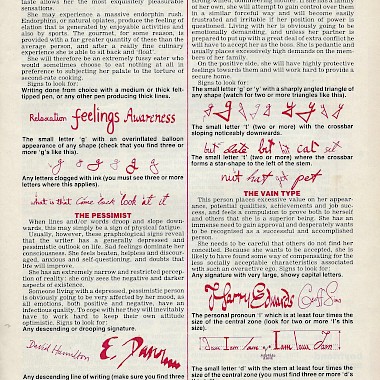 taste allows her the most exquisitely pleasurable
She may experience a massive endorphin rush.
Endorphins, or natural opiates, produce the feeling of
elation that is promoted by enjoyable activities and
also by sports. The gourmet, for some reason, is
provided with a far greater quantity of these than the
average person, and after a really fine culinary
experience she is able to sit back and 'float'.
She will therefore be an extremely fussy eater who
would sometimes choose to eat nothing at all in
preference to subjecting her palate to the torture of
second-rate cooking.
Signs to look for:
Writing done from choice with a medium or thick felt-
tipped pen, or any other pen producing thick lines.
Relaxation feelings Awareness
The small letter 'g' with an overinflated balloon
appearance of any shape (check that you find three or
more 'g's like this).
Any letters clogged with ink (you must see three or more
letters where this applies).
what is that come back look at it
THE PESSIMIST
When lines and/or words droop and slope down-
wards, this may simply be a sign of physical fatigue.
Usually, however, these graphological signs reveal
that the writer has a generally depressed and
pessimistic outlook on life. Sad feelings dominate her
consciousness. She feels beaten, helpless and discour-
aged, anxious and self-questioning, and doubts that
life will improve.
She has an extremely narrow and restricted percep-
tion of reality: she only sees the negative and darker
aspects of existence.
Someone living with a depressed, pessimistic person
is obviously going to be very affected by her mood, as
all emotions, both positive and negative, have an
infectious quality. To cope with her they will inevitably
have to work hard to keep their own attitude
optimistic. Signs to look for:
Any descending or drooping signature.
David Hamilton
Any descending line of writing (make sure you find three
of her own, she will attempt to gain control over them
in a similar forceful manner and will become
frustrated and irritable if her position of power is
questioned. Living with her is obviously going to be
emotionally demanding, and unless her partner is
prepared to put up with a great deal of conflict she
will have to accept her as the boss. She is pedantic and
usually places exceedingly high demands on the mem-
bers of her family.
On the positive side, she will have highly protective
feelings towards them and will work hard to provide a
secure home.
Signs to look for:
The small letter 'g' or 'y' with a sharply angled triangle of
any shape (watch for two or more triangles like this).
The small letter 't' (two or more) with the crossbar
sloping noticeably downwards.
but date bit in cat set
The small letter 't' (two or more) where the crossbar
forms a star-shape to the left of the stem.
nut hut pet
THE VAIN TYPE
This person places excessive value on her appear-
ance, potential qualities, achievements and job suc-
cess, and feels a compulsion to prove both to herself
and others that she is a superior being. She has an
immense need to gain approval and desperately wants
to be recognised as a successful and accomplished
person.
She needs to be careful that others do not find her
conceited. Because she wants to be accepted, she is
likely to have found some way of compensating for the
less socially acceptable characteristics associated
with such an overactive ego. Signs to look for:
Any signature with very large, showy, capital letters.
Harry Edwards
The personal pronoun 'I' which is at least four times the
size of the central zone (look for two or more 'I's this
size).
The small letter 'd' with the stem at least four times the
size of the central zone (you must find three or more 'd's